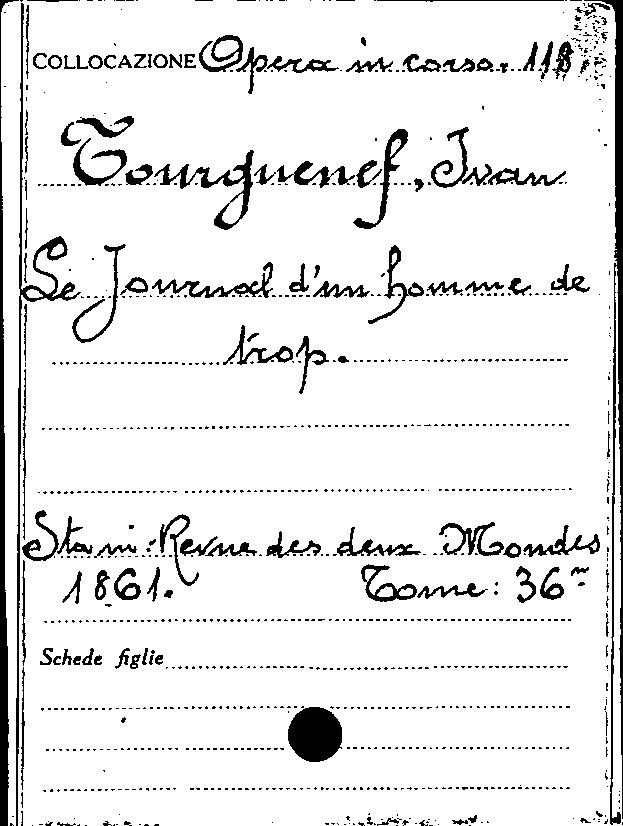 COLLOCAZIONE Opera in corso. 118
Tourguenef, Ivan
Le Journal d'un homme de
trop.
Sta in: Revue des deux Mondes
1861. Tome: 36me
Schede figlie